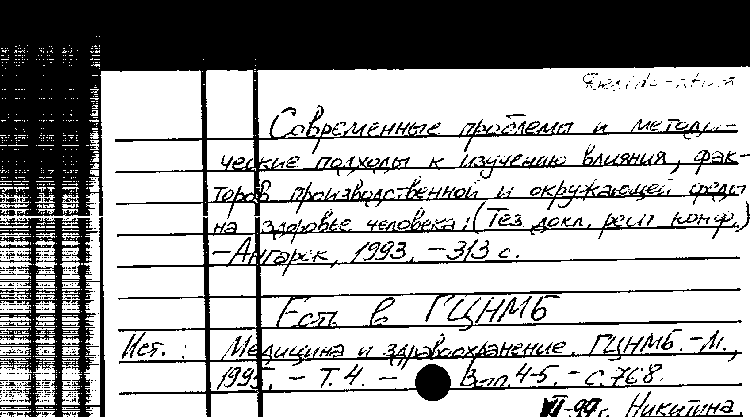 Современные проблемы и методи-
ческие подходы к изучению влияния, фак-
торов производственной и окружающей среды
на здоровье человека: (Тез докл. регион конф.)
- Ангарск, 1993. - 313 с.
Есть в ГЦНМБ
Ист. : Медицина и здравоохранение. ГЦНМБ. - М.,
1995. - Т. 4. - Вып. 4-5. - С. 768.
VI-99 г. Никитина